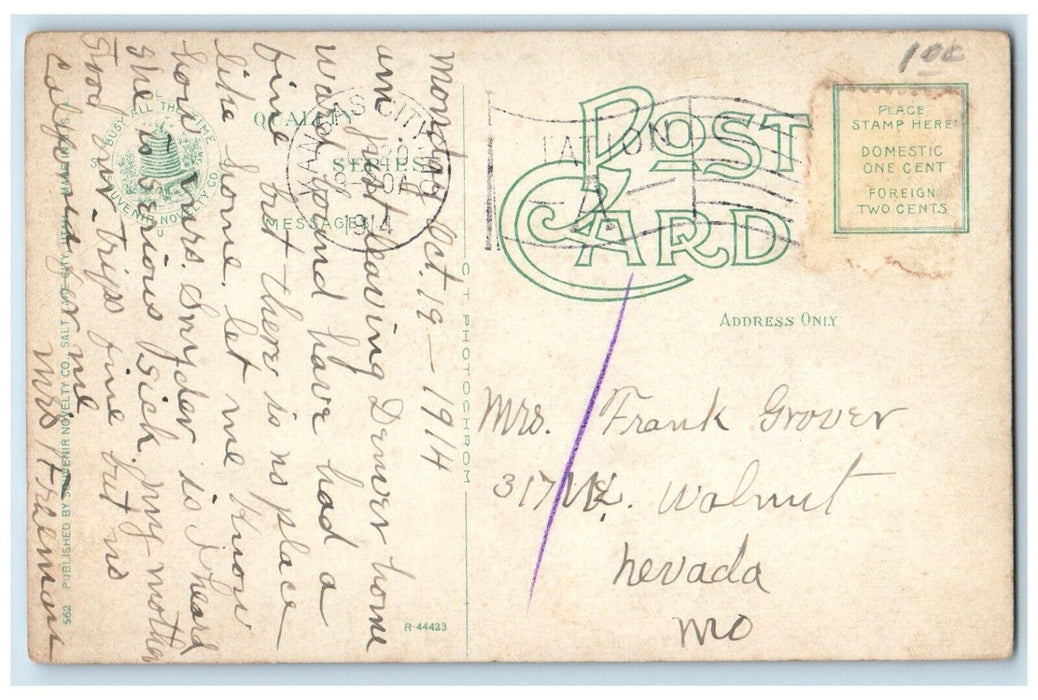 Monday Oct. 19 - 1914
am just leaving Denver home
ward bound have had a
fine but there is no place
like home. let me know
how mrs. Snyder is I heard
she is serious sick. my mother
stood
trips fine but no
California for me
Mrs H Freeman
100
POST
CARD
PLACE
STAMP HERE
DOMESTIC
ONE CENT
FOREIGN
TWO CENTS
ADDRESS ONLY
Mrs. Frank Grover
317 W. Walnut
nevada
mo
KANSAS CITY
1914
STATION
A
QUALITY
SERIES
MESSAGE
BUSY ALL THE TIME
SOUVENIR NOVELTY CO.
C. T. PHOTOCHROM
R-44423
562 PUBLISHED BY SOUVENIR NOVELTY CO., SALT LAKE CITY, UTAH.